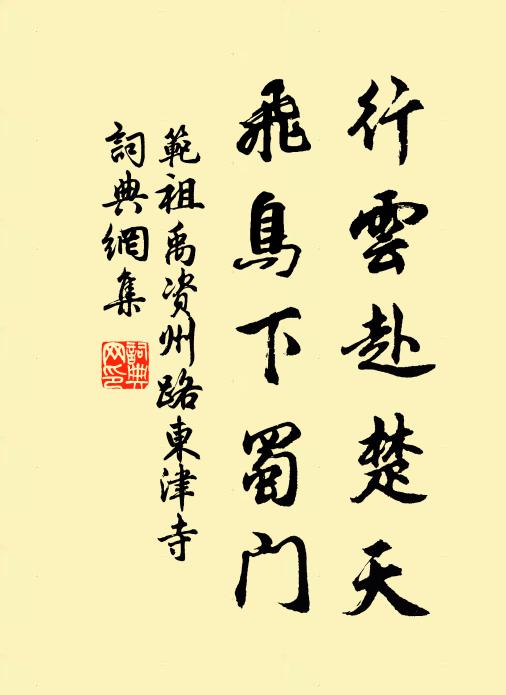 行雲赴楚天
飛鳥下蜀門
範祖禹資州路東津寺
詞典網集
詞典網印